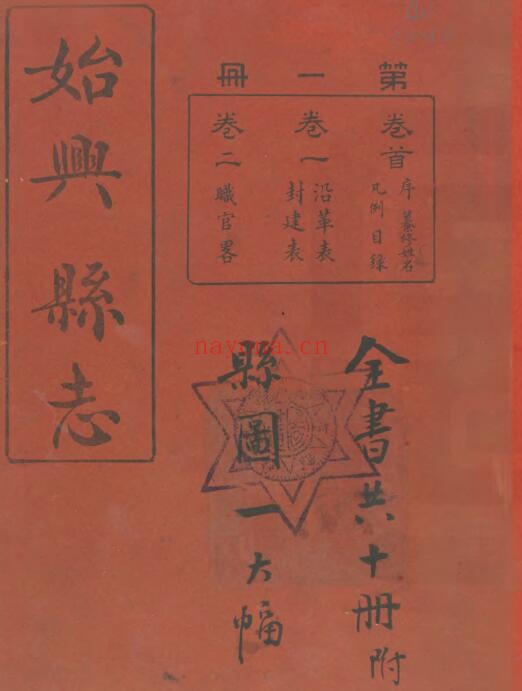 始興縣志
第一冊
卷首 序 纂修姓名
凡例 目錄
卷一 沿革表
封建表
卷二 職官畧
全書共十冊附
縣圖一大幅
nayona.cn